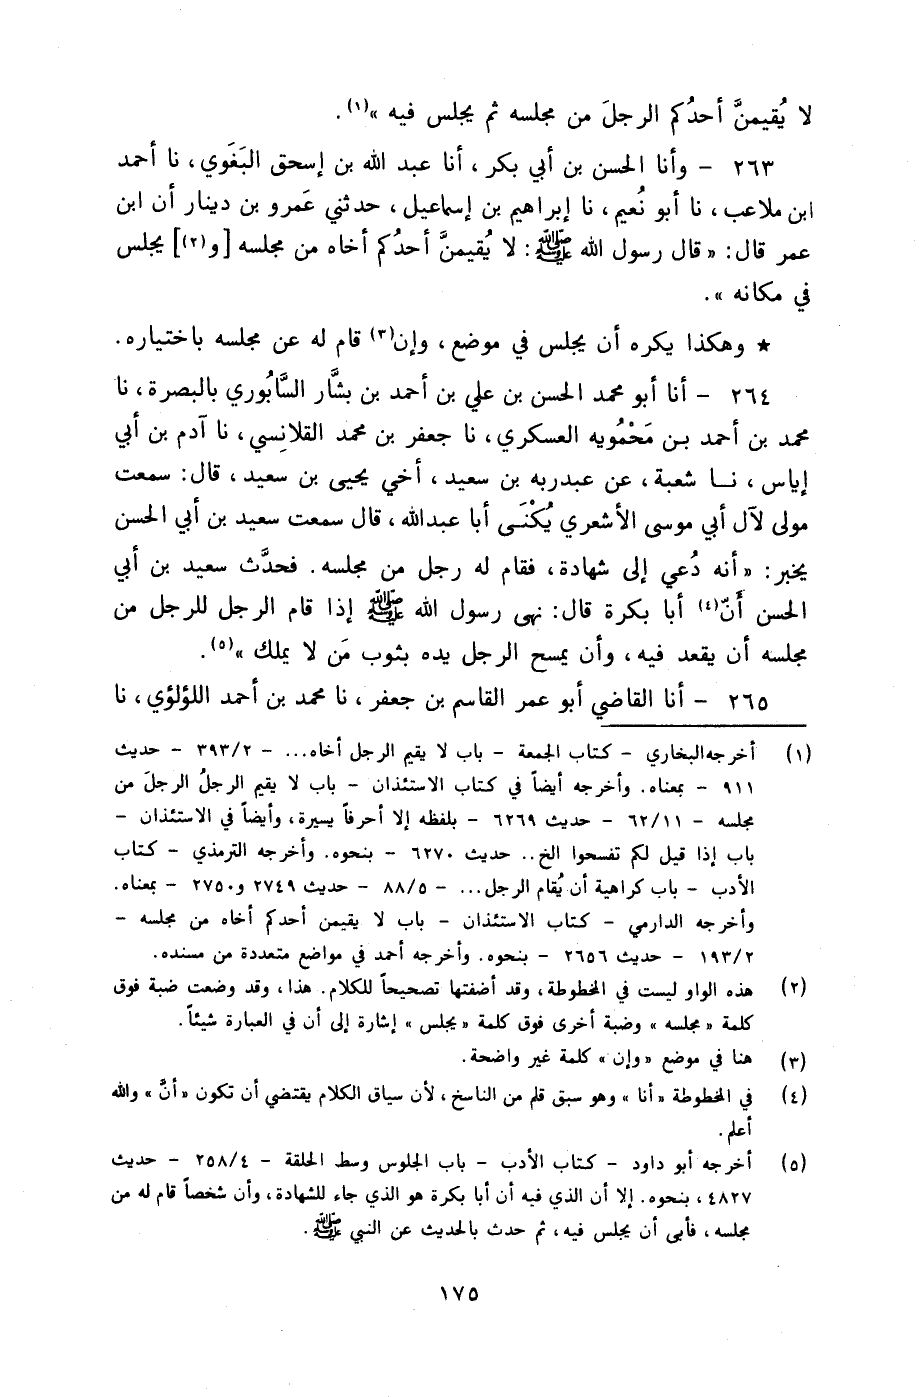 لا يُقيمنَّ أحدُكم الرجلَ من مجلسه ثم يجلس فيه »(١).
٢٦٣ - وأنا الحسن بن أبي بكر ، أنا عبد الله بن إسحق البَغَوي ، نا أحمد
ابن ملاعب ، نا أبو نُعيم ، نا إبراهيم بن إسماعيل ، حدثني عَمرو بن دينار أن ابن
عمر قال : « قال رسول الله ﷺ : لا يُقيمنَّ أحدُكم أخاه من مجلسه [و(٢)] يجلس
في مكانه ».
★ وهكذا يكره أن يجلس في موضع ، وإن(٣) قام له عن مجلسه باختياره.
٢٦٤ - أنا أبو محمد الحسن بن علي بن أحمد بن بشَّار السَّابُوري بالبصرة ، نا
محمد بن أحمد بن مَحْمُويه العسكري ، نا جعفر بن محمد القلانِسي ، نا آدم بن أبي
إياس ، نا شعبة ، عن عبدربه بن سعيد ، أخي يحيى بن سعيد ، قال : سمعت
مولى لآل أبي موسى الأشعري يُكْنَى أبا عبدالله ، قال سمعت سعيد بن أبي الحسن
يخبر : « أنه دُعي إلى شهادة ، فقام له رجل من مجلسه . فحدَّث سعيد بن أبي
الحسن أَنّ(٤) أبا بكرة قال : نهى رسول الله ﷺ إذا قام الرجل للرجل من
مجلسه أن يقعد فيه ، وأن يمسح الرجل يده بثوب مَن لا يملك »(٥).
٢٦٥ - أنا القاضي أبو عمر القاسم بن جعفر ، نا محمد بن أحمد اللؤلؤي ، نا
(١) أخرجه البخاري - كتاب الجمعة - باب لا يقيم الرجل أخاه... - ٣٩٣/٢ - حديث
٩١١ - بمعناه. وأخرجه أيضاً في كتاب الاستئذان - باب لا يقيم الرجلُ الرجلَ من
مجلسه - ٦٢/١١ - حديث ٦٢٦٩ - بلفظه إلا أحرفاً يسيرة ، وأيضاً في الاستئذان -
باب إذا قيل لكم تفسحوا الخ.. حديث ٦٢٧٠ - بنحوه. وأخرجه الترمذي - كتاب
الأدب - باب كراهية أن يُقام الرجل... - ٨٨/٥ - حديث ٢٧٤٩ و ٢٧٥٠ - بمعناه.
وأخرجه الدارمي - كتاب الاستئذان - باب لا يقيمن أحدكم أخاه من مجلسه -
١٩٣/٢ - حديث ٢٦٥٦ - بنحوه. وأخرجه أحمد في مواضع متعددة من مسنده.
(٢) هذه الواو ليست في المخطوطة ، وقد أضفتها تصحيحاً للكلام. هذا ، وقد وضعت ضبة فوق
كلمة « مجلسه » وضبة أخرى فوق كلمة « يجلس » إشارة إلى أن في العبارة شيئاً.
(٣) هنا في موضع « وإن » كلمة غير واضحة.
(٤) في المخطوطة « أنا » وهو سبق قلم من الناسخ ، لأن سياق الكلام يقتضي أن تكون « أنَّ » والله
أعلم.
(٥) أخرجه أبو داود - كتاب الأدب - باب الجلوس وسط الحلقة - ٢٥٨/٤ - حديث
٤٨٢٧ ، بنحوه. إلا أن الذي فيه أن أبا بكرة هو الذي جاء للشهادة ، وأن شخصاً قام له من
مجلسه ، فأبى أن يجلس فيه ، ثم حدث بالحديث عن النبي ﷺ.
١٧٥